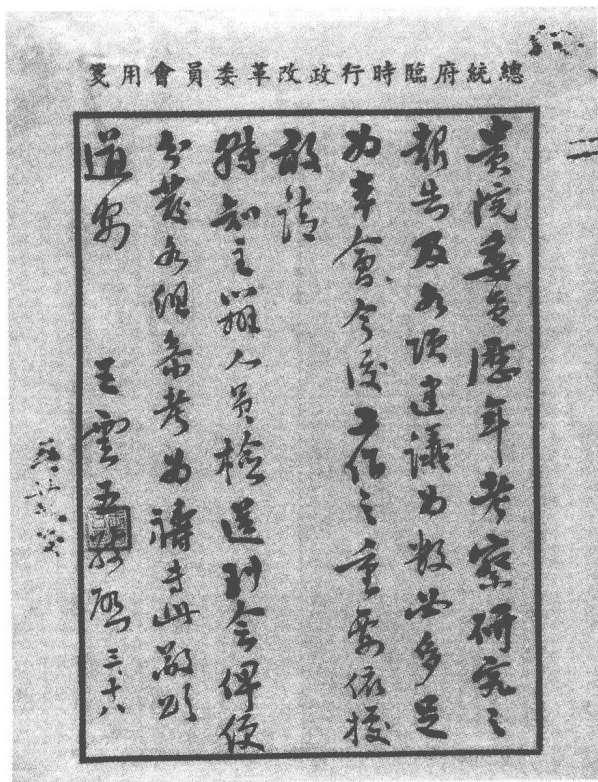 總統府臨時行政改革委員會用箋
貴院委員歷年考察研究之
報告及各項建議為數必多足
為本會今後工作之重要依據
敢請
轉知主辦人員檢送到會俾便
分發各組參考為禱專此敬頌
道安
王雲五敬啟 三、十八